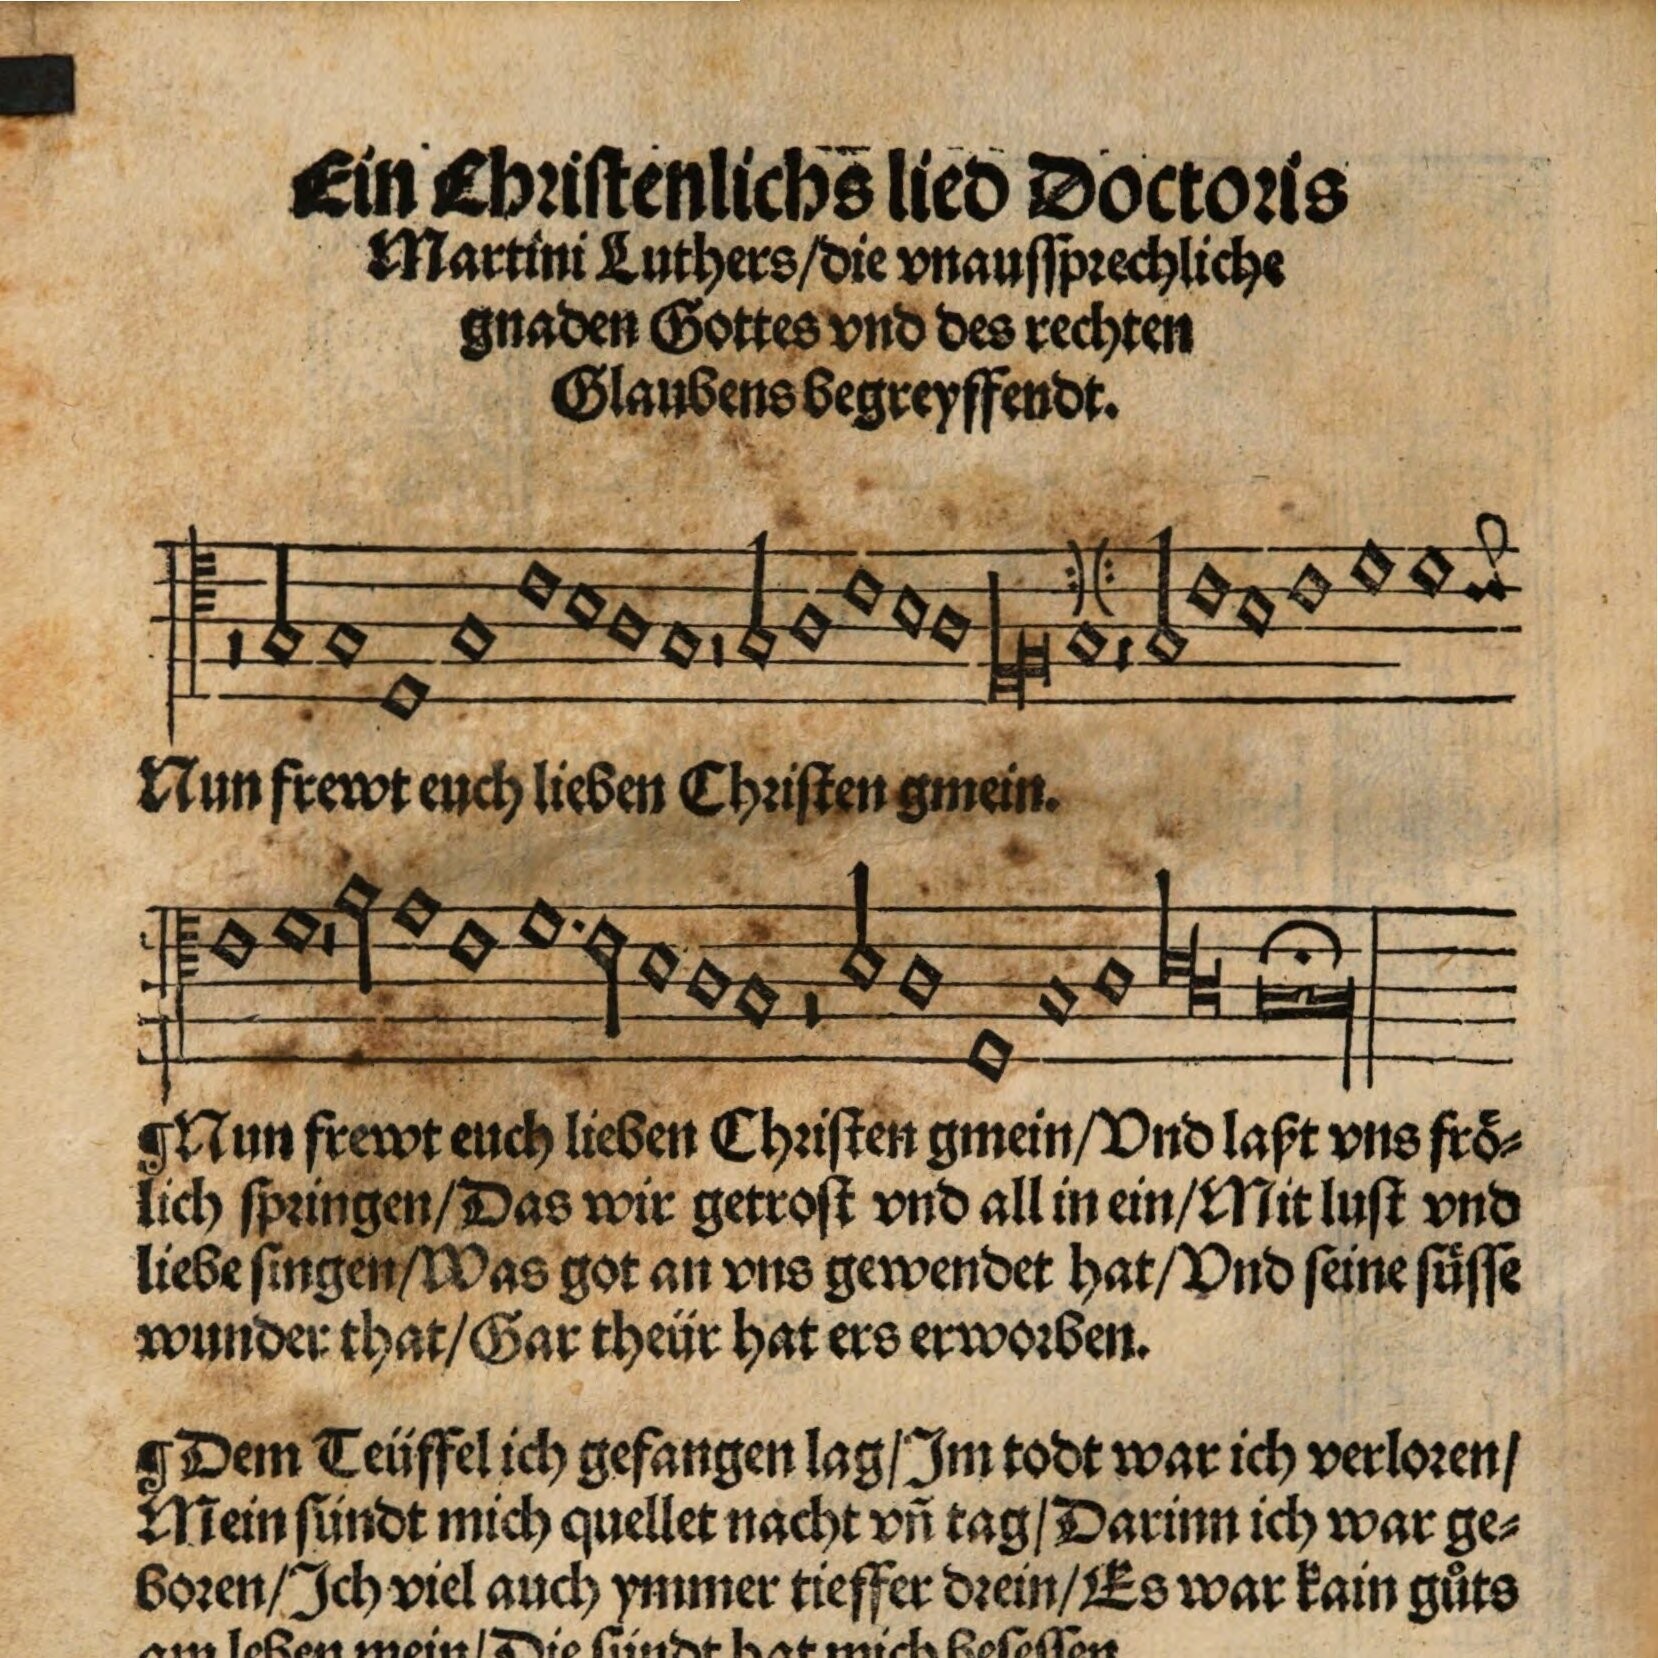 Ein Christenlichs lied Doctoris
Martini Luthers/die vnaussprechliche
gnaden Gottes vnd des rechten
Glaubens begreyffendt.
Nun frewt euch lieben Christen gmein.
¶Nun frewt euch lieben Christen gmein/Vnd laßt vns frö⸗
lich springen/Das wir getrost vnd all in ein/Mit lust vnd
liebe singen/Was got an vns gewendet hat/Vnd seine süsse
wunder that/Gar theür hat ers erworben.
¶Dem Teüffel ich gefangen lag/Im todt war ich verloren/
Mein sündt mich quellet nacht vñ tag/Darinn ich war ge⸗
boren/Ich viel auch ymmer tieffer drein/Es war kain gůts
am leben mein/Die sündt hat mich besessen